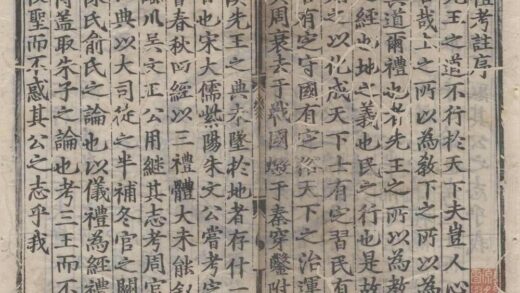 禮考註序
先王之道不行於天下夫豈人心
哉上之所以為教下之所以為
道爾禮也者先王之所以為教
之經也地之義也民之行也是故
之以化成天下士有定習民有
有定守國有定俗天下之治運
周衰去于戰國燼于秦穿鑿附
先王之典禮墜於地者存什一
也宋大儒紫陽朱文公嘗考定
春秋四經以三禮體大未能敘
臨川吳文正公用繼其志考周官
典以大司徒之半補冬官之闕
氏俞氏之論也以儀禮為經禮
蓋取朱子之論也考三王而不
聖而不惑其公之志乎我